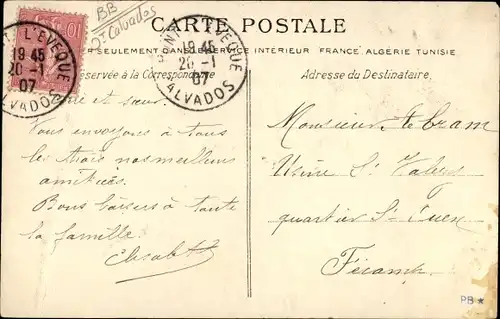 BB
Pt Calvados
CARTE POSTALE
SEULEMENT DANS LE SERVICE INTÉRIEUR FRANCE, ALGÉRIE TUNISIE
10
T L'EVEQUE
19 45
20 -1
07
CALVADOS
PONT L'EVEQUE
19 45
20 -1
07
CALVADOS
réservée à la Correspondance
Adresse du Destinataire.
et sœur.
Vous envoyons à tous
les trois nos meilleures
amitiés.
Bons baisers à toute
la famille.
Elisabeth
Monsieur
Usine St Valery
quartier St Ouen
Fécamp
PB ★